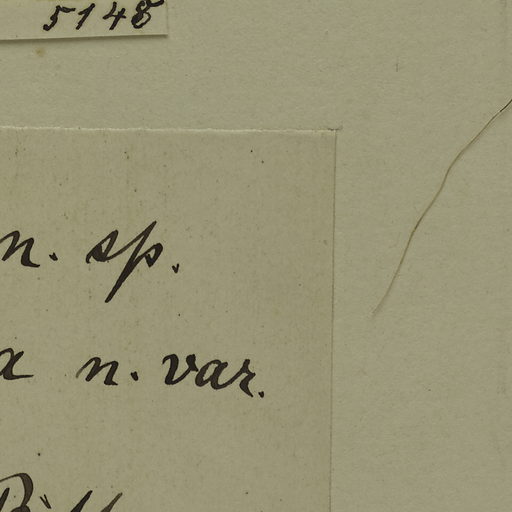 5148
n. sp.
a n. var.